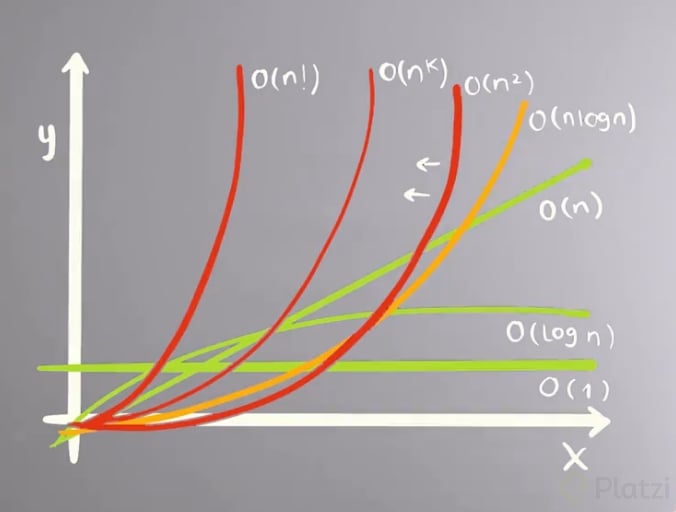 O(n!)
O(nᴷ)
O(n²)
O(nlogn)
y
O(n)
O(log n)
O(1)
x
Platzi